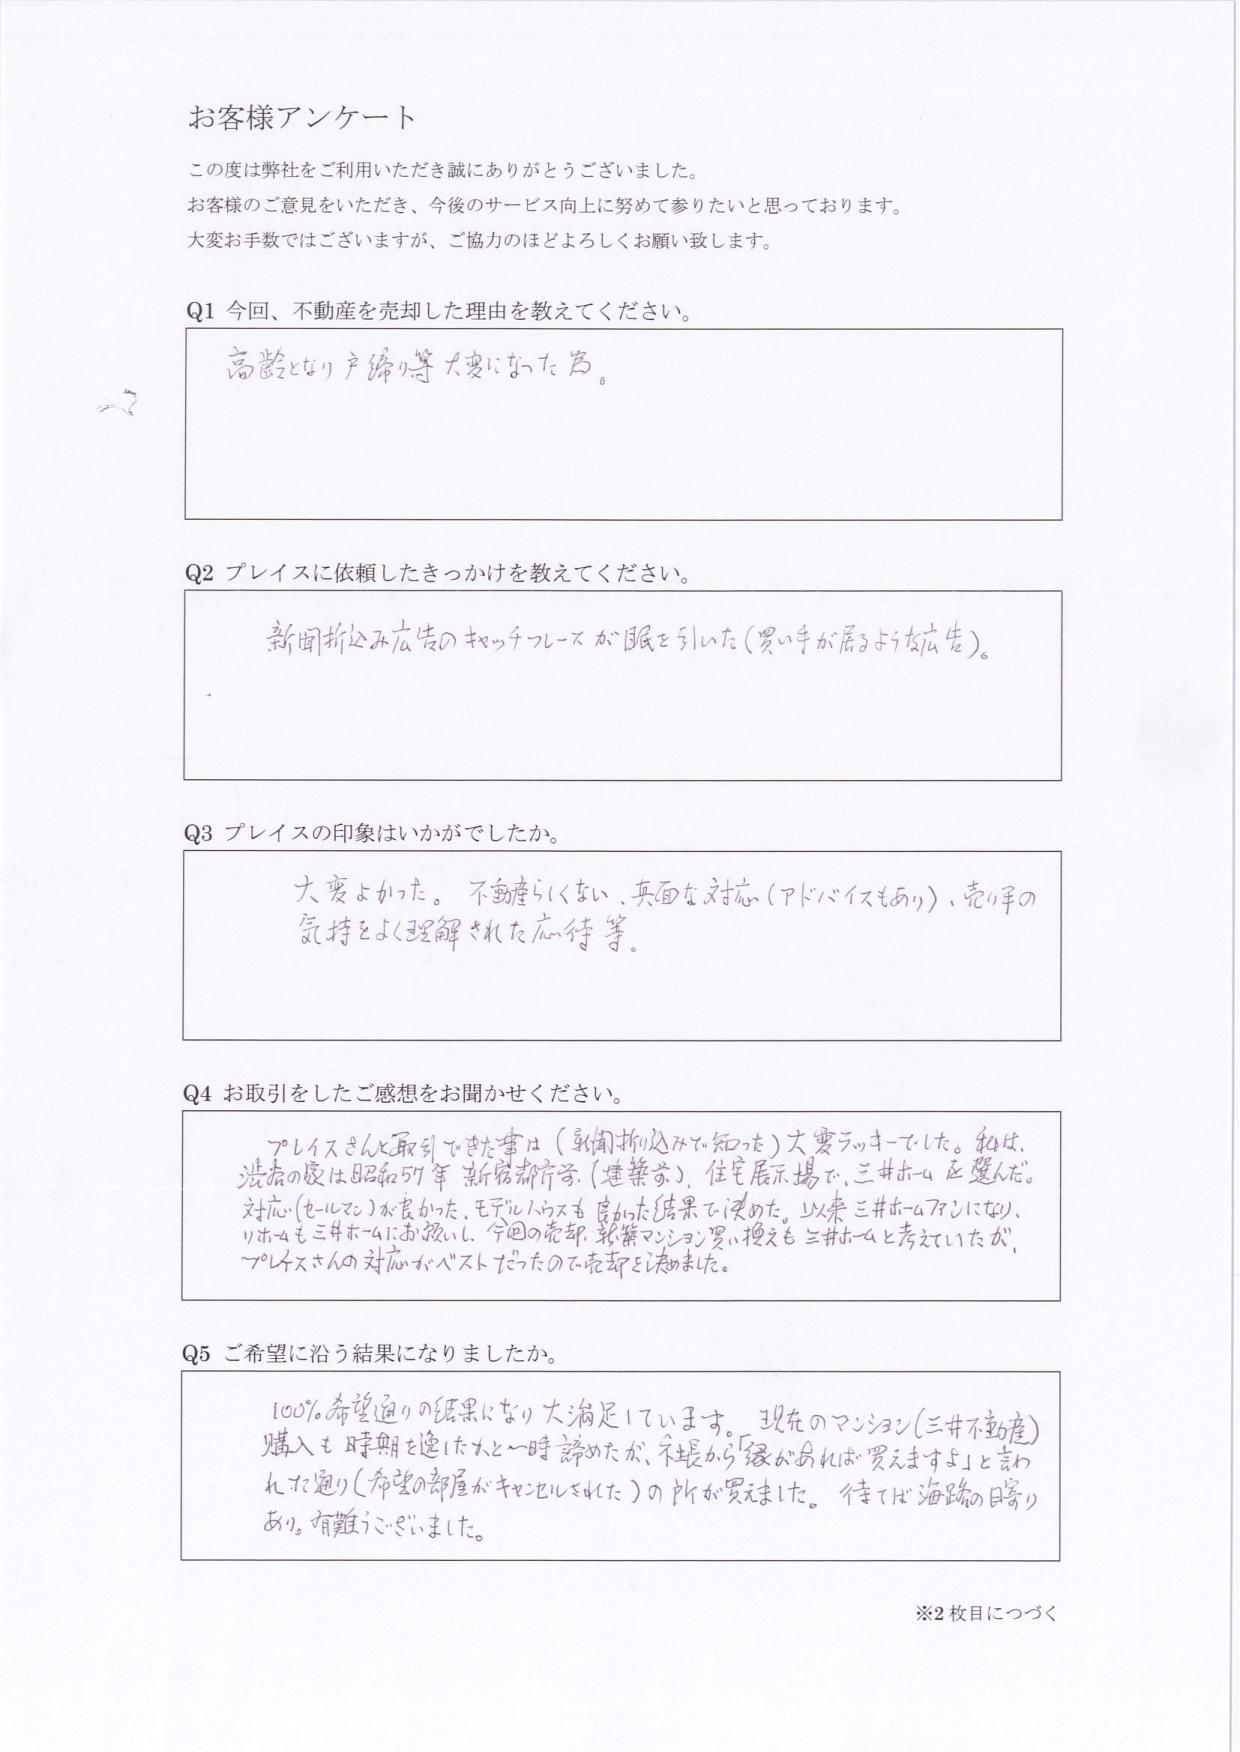 お客様アンケート
この度は弊社をご利用いただき誠にありがとうございました。
お客様のご意見をいただき、今後のサービス向上に努めて参りたいと思っております。
大変お手数ではございますが、ご協力のほどよろしくお願い致します。
Q1 今回、不動産を売却した理由を教えてください。
高齢となり戸締り等大変になった為。
Q2 プレイスに依頼したきっかけを教えてください。
新聞折込み広告のキャッチフレーズが眼を引いた(買い手が居るような広告)。
Q3 プレイスの印象はいかがでしたか。
大変よかった。不動産らしくない、真面な対応(アドバイスもあり)、売り手の
気持をよく理解された応待等。
Q4 お取引をしたご感想をお聞かせください。
プレイスさんと取引できた事は(新聞折り込みで知った)大変ラッキーでした。私は、
渋谷の家は昭和57年新宿都庁前(建築前)、住宅展示場で、三井ホームを選んだ。
対応(セールマン)が良かった、モデルハウスも良かった結果で決めた。以来三井ホームファンになり、
リホームも三井ホームにお願いし、今回の売却、新築マンション買い換えも三井ホームと考えていたが、
プレイスさんの対応がベストだったので売却を決めました。
Q5 ご希望に沿う結果になりましたか。
100%希望通りの結果になり大満足しています。現在のマンション(三井不動産)
購入も時期を逸したかと一時諦めたが、社長から「縁があれば買えますよ」と言わ
れた通り(希望の部屋がキャンセルされた)の所が買えました。待てば海路の日寄り
あり。有難うございました。
※2 枚目につづく